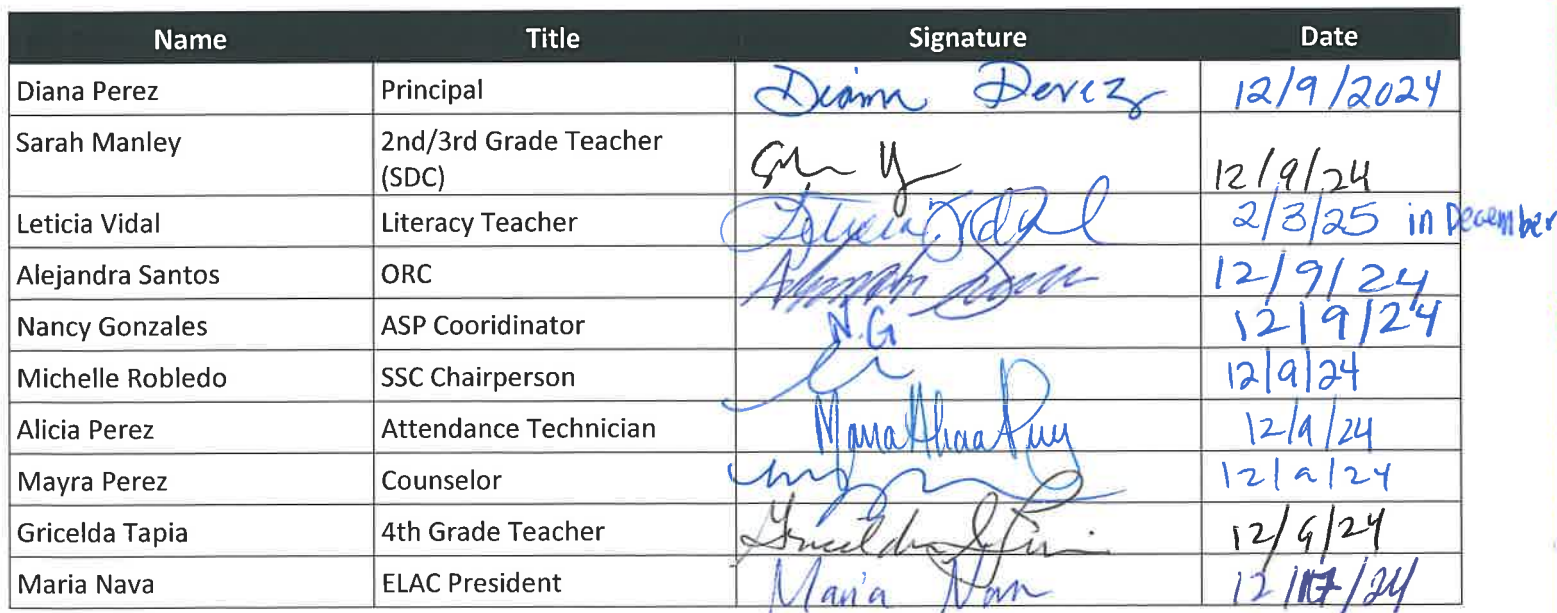 Name Title Signature Date
Diana Perez Principal Diana Perez 12/9/2024
Sarah Manley 2nd/3rd Grade Teacher
(SDC) 12/9/24
Leticia Vidal Literacy Teacher Leticia Vidal 2/3/25 in December
Alejandra Santos ORC 12/9/24
Nancy Gonzales ASP Cooridinator N.G 12/9/24
Michelle Robledo SSC Chairperson 12/9/24
Alicia Perez Attendance Technician Maria Alicia Perez 12/9/24
Mayra Perez Counselor 12/9/24
Gricelda Tapia 4th Grade Teacher Gricelda 12/9/24
Maria Nava ELAC President Maria Nava 12/17/24